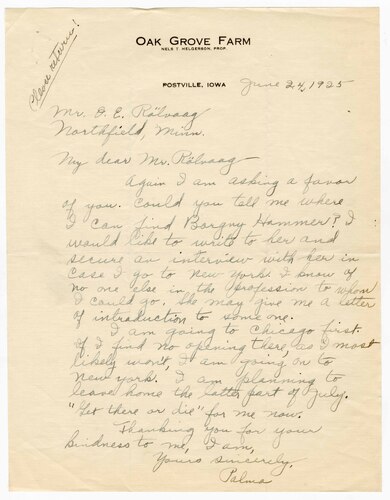 Please return!
OAK GROVE FARM
NELS T. HELGERSON, PROP.
POSTVILLE, IOWA
June 24, 1925
Mr. O. E. Rölvaag
Northfield, Minn.
My dear Mr. Rölvaag—
Again I am asking a favor
of you. Could you tell me where
I can find Borgny Hammer? I
would like to write to her and
secure an interview with her in
case I go to New York. I know of
no one else in the profession to whom
I could go. She may give me a letter
of introduction to some one.
I am going to Chicago first.
If I find no opening there, as I most
likely won't, I am going on to
New York. I am planning to
leave home the latter part of July.
"Get there or die" for me now.
Thanking you for your
kindness to me, I am,
Yours sincerely,
Palma